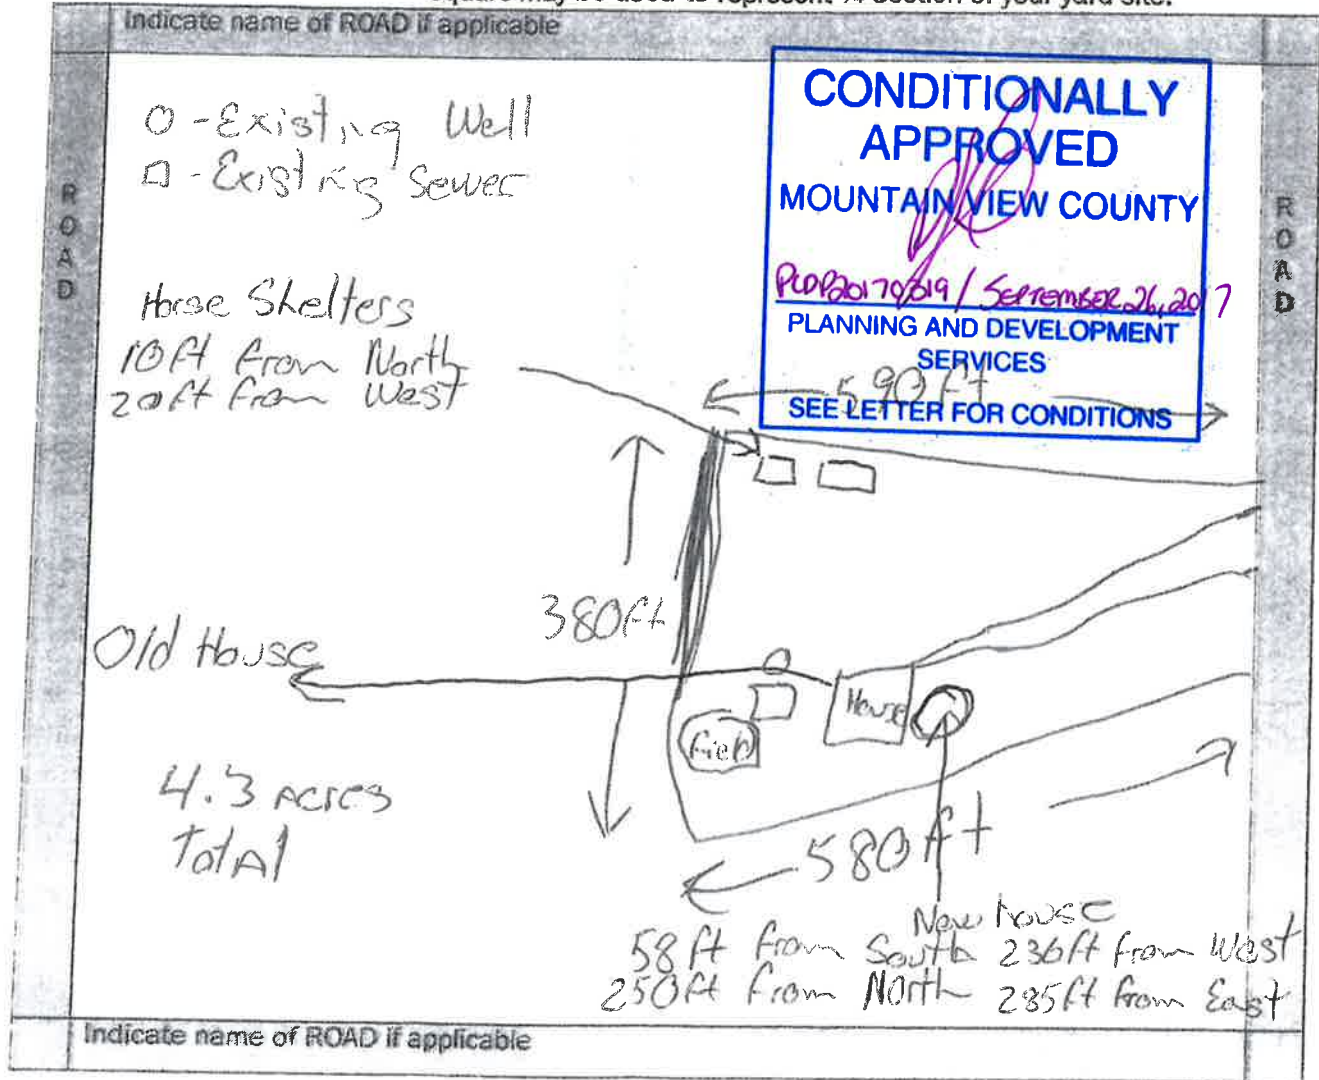 square may be used to represent ¼ section of your yard site.
Indicate name of ROAD if applicable
ROAD
O - Existing Well
□ - Existing Sewer
Horse Shelters
10ft from North
20ft from West
CONDITIONALLY
APPROVED
MOUNTAIN VIEW COUNTY
PLDP20170319 / SEPTEMBER 26, 2017
PLANNING AND DEVELOPMENT
SERVICES
SEE LETTER FOR CONDITIONS
590ft
ROAD
380ft
Old House
House
Field
4.3 Acres
Total
580ft
New house
58ft from South 236ft from West
250ft from North 285ft from East
Indicate name of ROAD if applicable